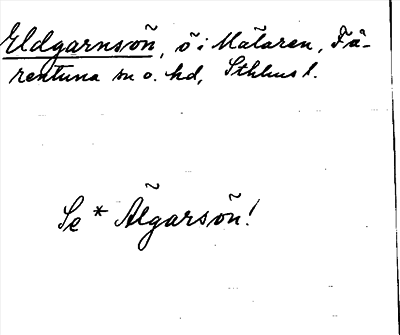 Eldgarnsön, ö i Mälaren, Fä-
rentuna sn o. hd, Sthlms l.
Se * Älgarsön!